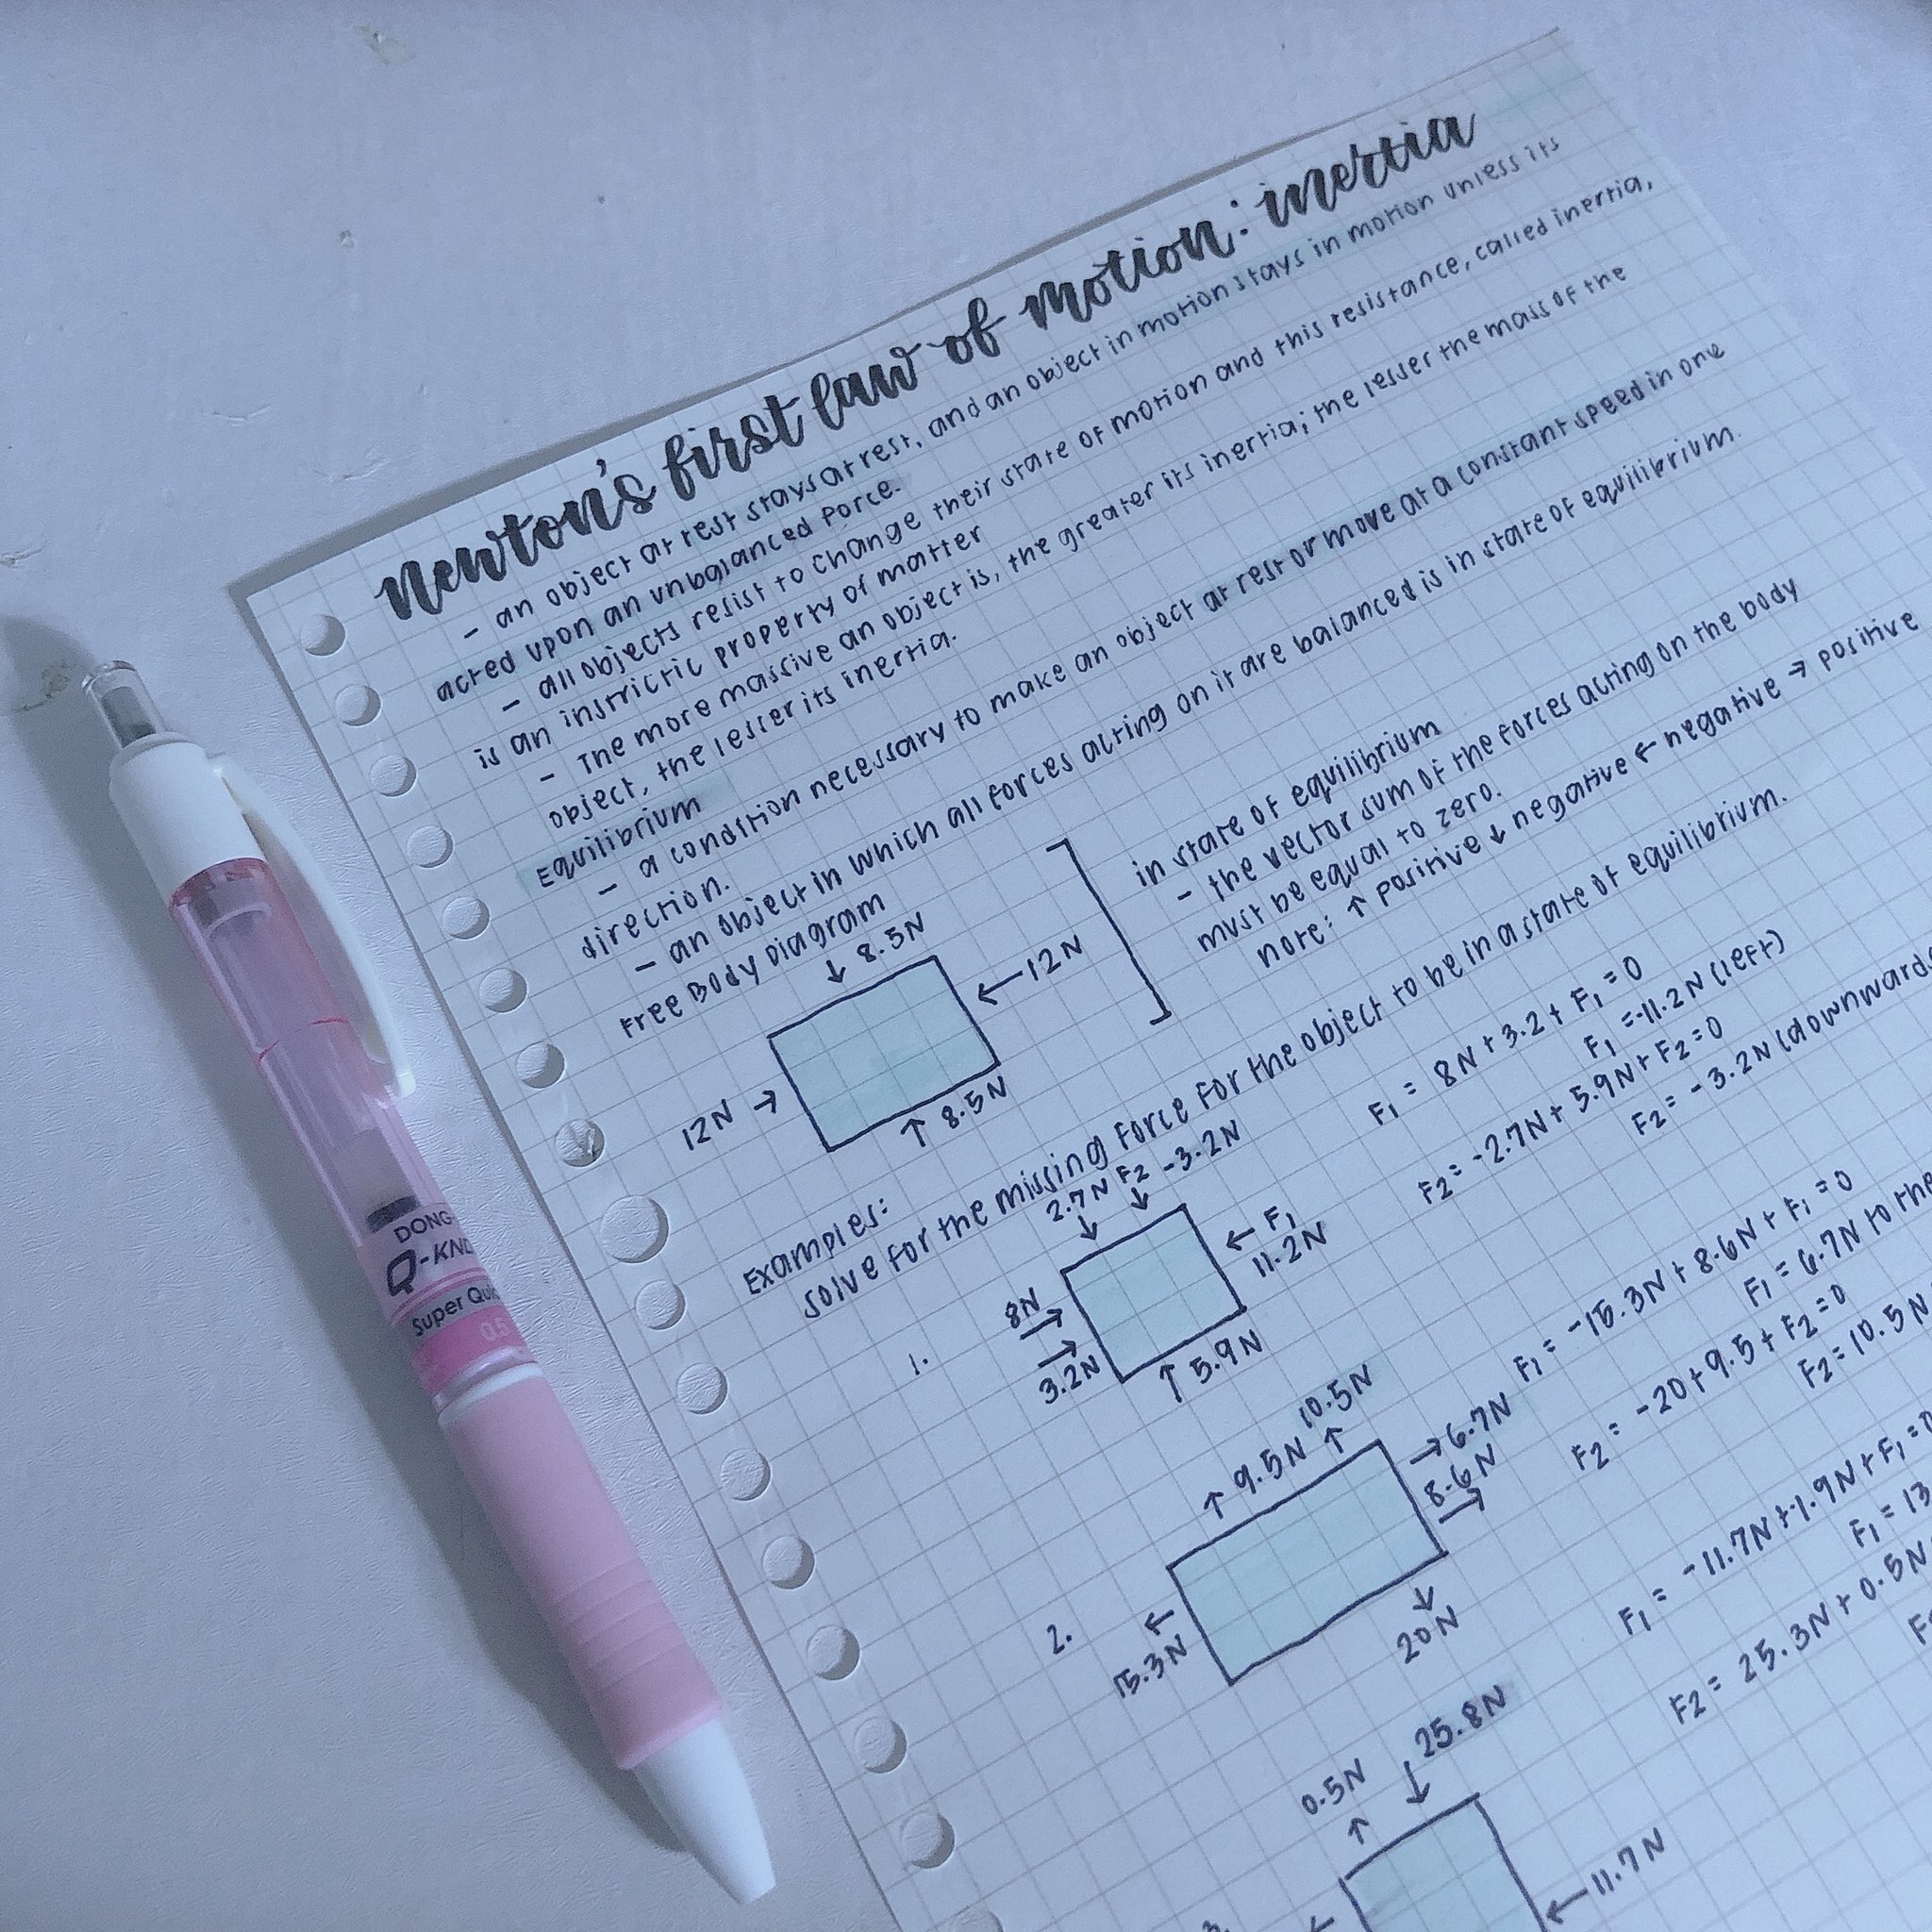 newton's first law of motion: inertia
- an object at rest stays at rest, and an object in motion stays in motion unless its
acted upon an unbalanced force.
- all objects resist to change their state of motion and this resistance, called inertia,
is an instrictic property of matter
- The more massive an object is, the greater its inertia; the lesser the mass of the
object, the lesser its inertia.
Equilibrium
- a condition necessary to make an object at rest or move at a constant speed in one
direction.
- an object in which all forces acting on it are balanced is in state of equilibrium.
Free Body Diagram
↓ 8.5N
←12N
12N →
↑ 8.5N
in state of equilibrium
- the vector sum of the forces acting on the body
must be equal to zero.
note: ↑ positive ↓ negative ← negative → positive
Examples:
solve for the missing force for the object to be in a state of equilibrium.
1.
2.7N F2 -3.2N
↓ ↓
← F1
11.2N
8N
→
→
3.2N
↑ 5.9N
F1 = 8N + 3.2 + F1 = 0
F1 = -11.2N (left)
F2 = -2.7N + 5.9N + F2 = 0
F2 = -3.2N (downwards
2.
↑ 9.5N
10.5N
↑
→ 6.7N
8.6N
→
←
15.3N
↓
20N
F1 = -15.3N + 8.6N + F1 = 0
F1 = 6.7N to the
F2 = -20 + 9.5 + F2 = 0
F2 = 10.5N
0.5N
↑
25.8N
↓
← 11.7N
←
F1 = -11.7N + -1.9N + F1 =
F1 = 13
F2 = 25.3N + 0.5N
DONG-
Q-KNO
Super Quic
0.5